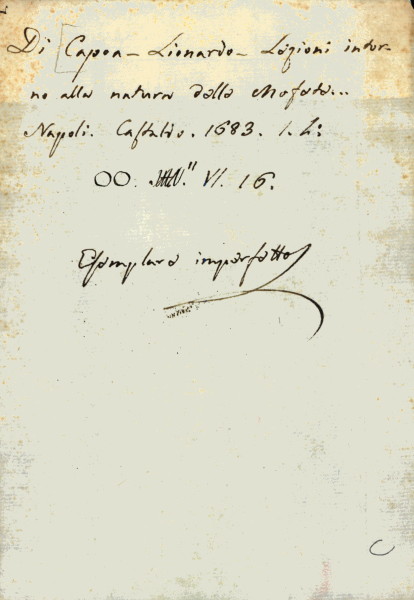 Di [Capoa - Lionardo - Lezioni intor-
no alla natura delle Mofete...
Napoli. Castaldo. 1683. 1. L:
OO. VI. 16.
Esemplare imperfetto
C